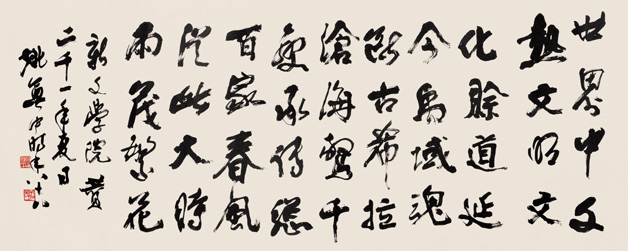 世界中文
熱文明文
化賒道延
今禹域魂
古希拉
滄海千
變承傳總
百家春風
從此大時
雨茂繁花
新文學院
二千一年夏日
姚奠中時年八十九